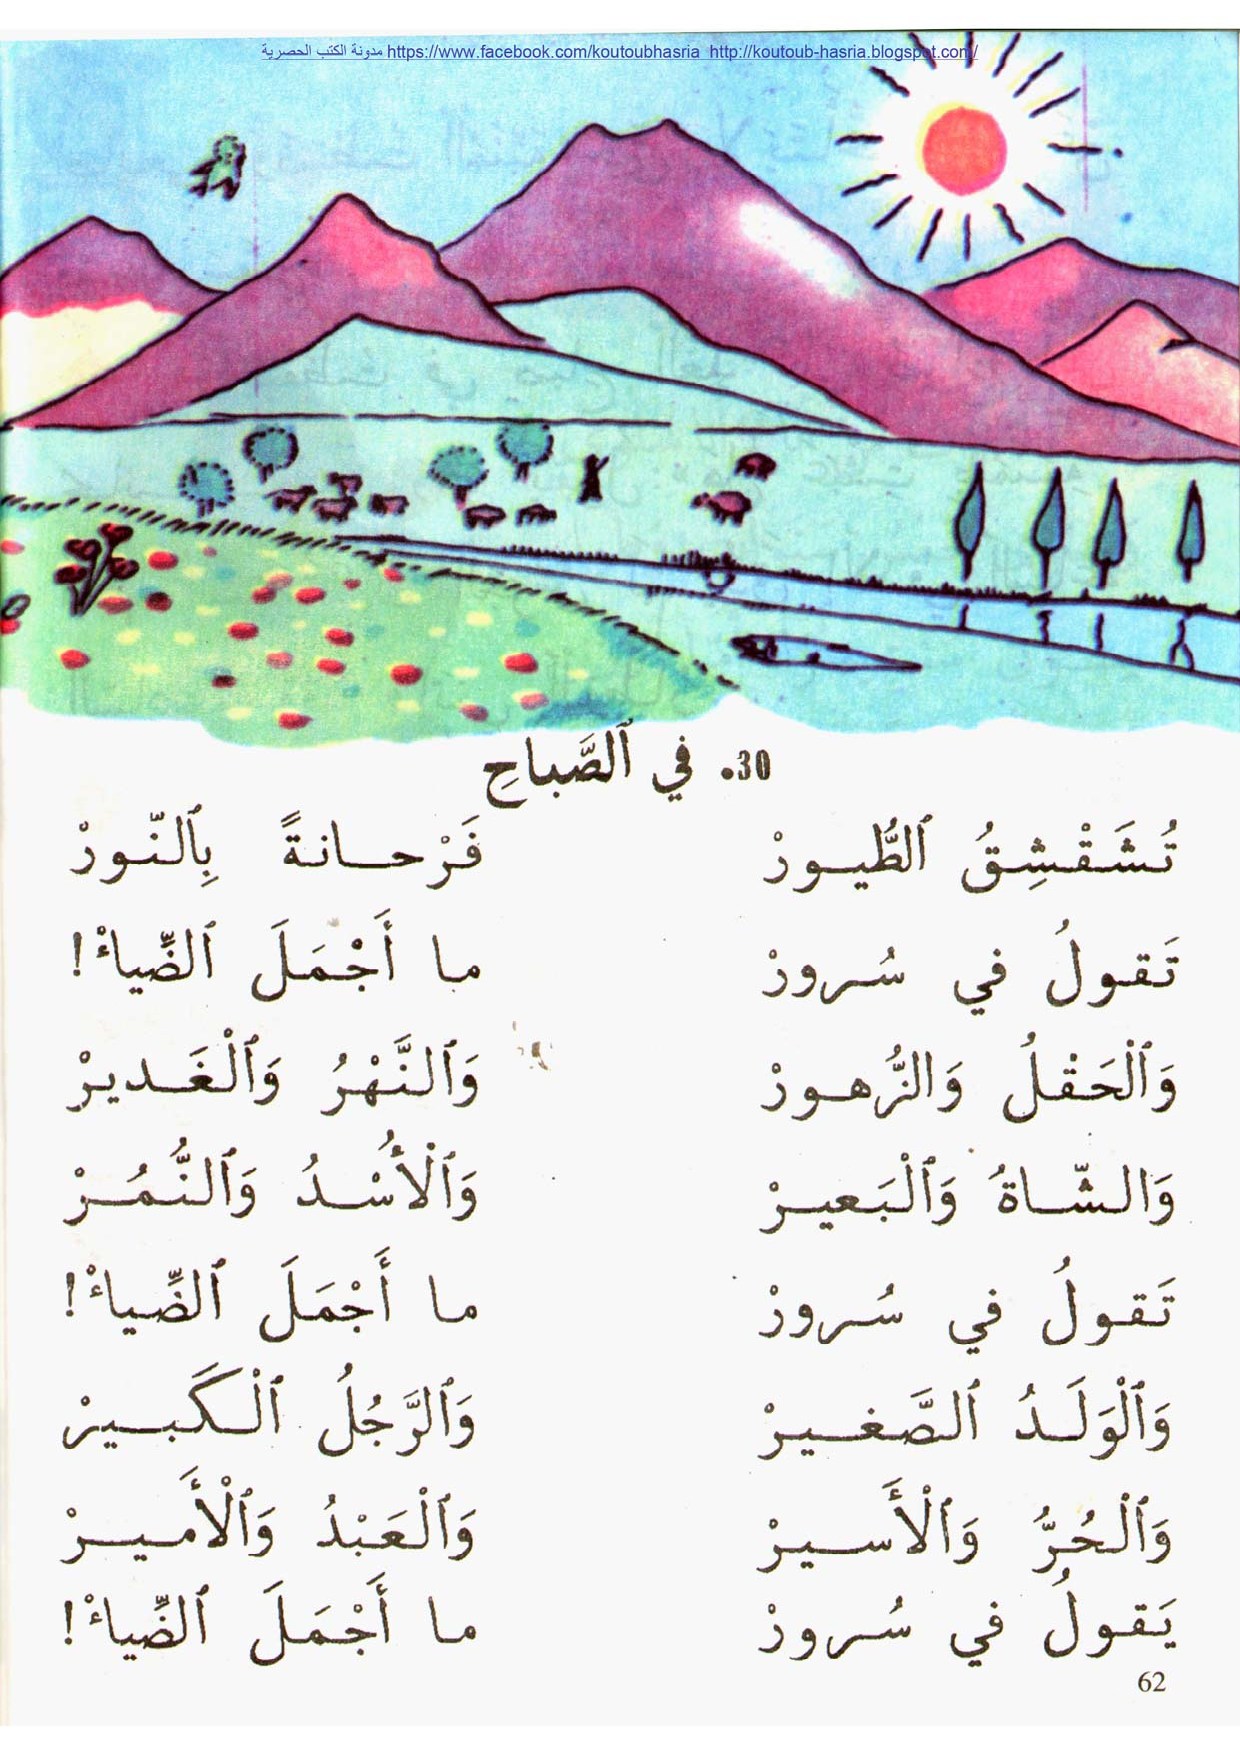 مدونة الكتب الحصرية https://www.facebook.com/koutoubhasria http://koutoub-hasria.blogspot.com/
30. في ٱلصَّباحِ
تُشَقْشِقُ ٱلطُّيورْ فَرْحانةً بِٱلنّورْ
تَقولُ في سُرورْ ما أَجْمَلَ ٱلضِّياءْ!
وَٱلْحَقْلُ وَالزُّهورْ وَٱلنَّهْرُ وَٱلْغَديرْ
وَالشّاةُ وَٱلْبَعيرْ وَٱلْأُسْدُ وَٱلنُّمُرْ
تَقولُ في سُرورْ ما أَجْمَلَ ٱلضِّياءْ!
وَٱلْوَلَدُ ٱلصَّغيرْ وَٱلرَّجُلُ ٱلْكَبيرْ
وَٱلْحُرُّ وَٱلْأَسيرْ وَٱلْعَبْدُ وَٱلْأَميرْ
يَقولُ في سُرورْ ما أَجْمَلَ ٱلضِّياءْ!
62